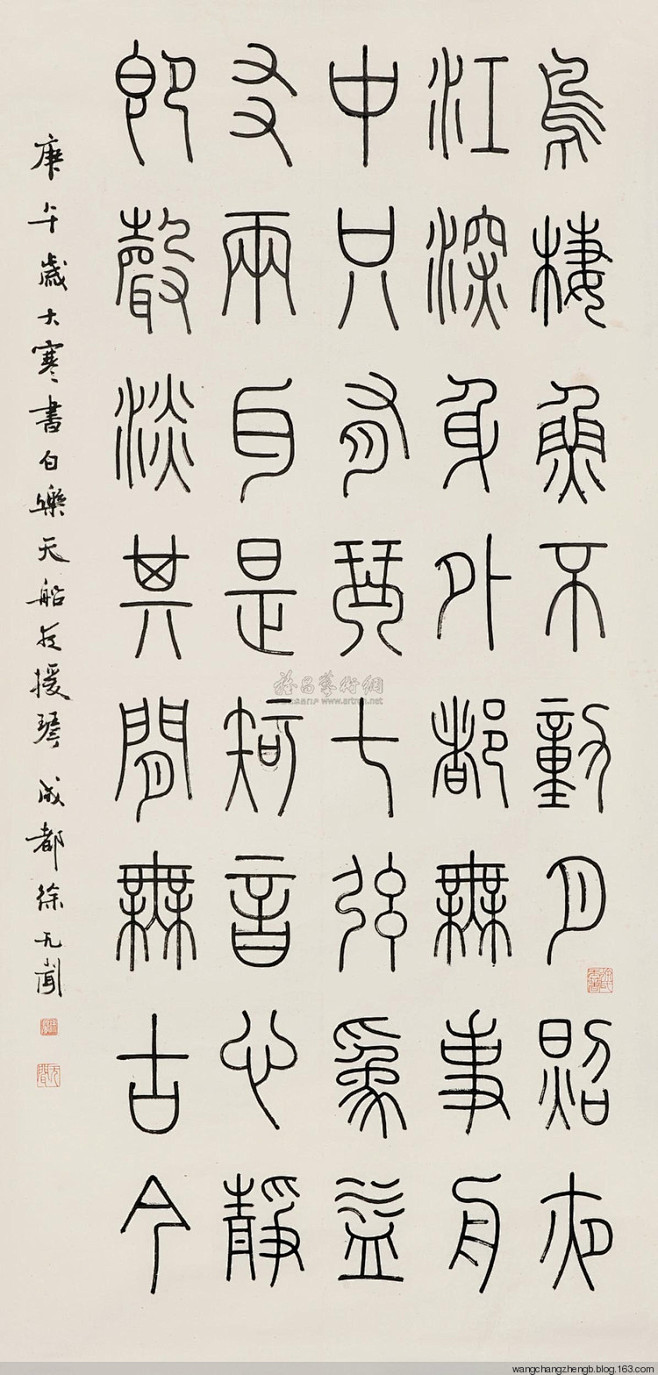 鳥棲魚不動月照夜
江深身外都無事舟
中只有琴七弦爲益
友兩耳是知音心靜
即聲淡其間無古今
庚午歲大寒書白樂天船夜援琴 成都徐无聞
wangchangzhengb.blog.163.com